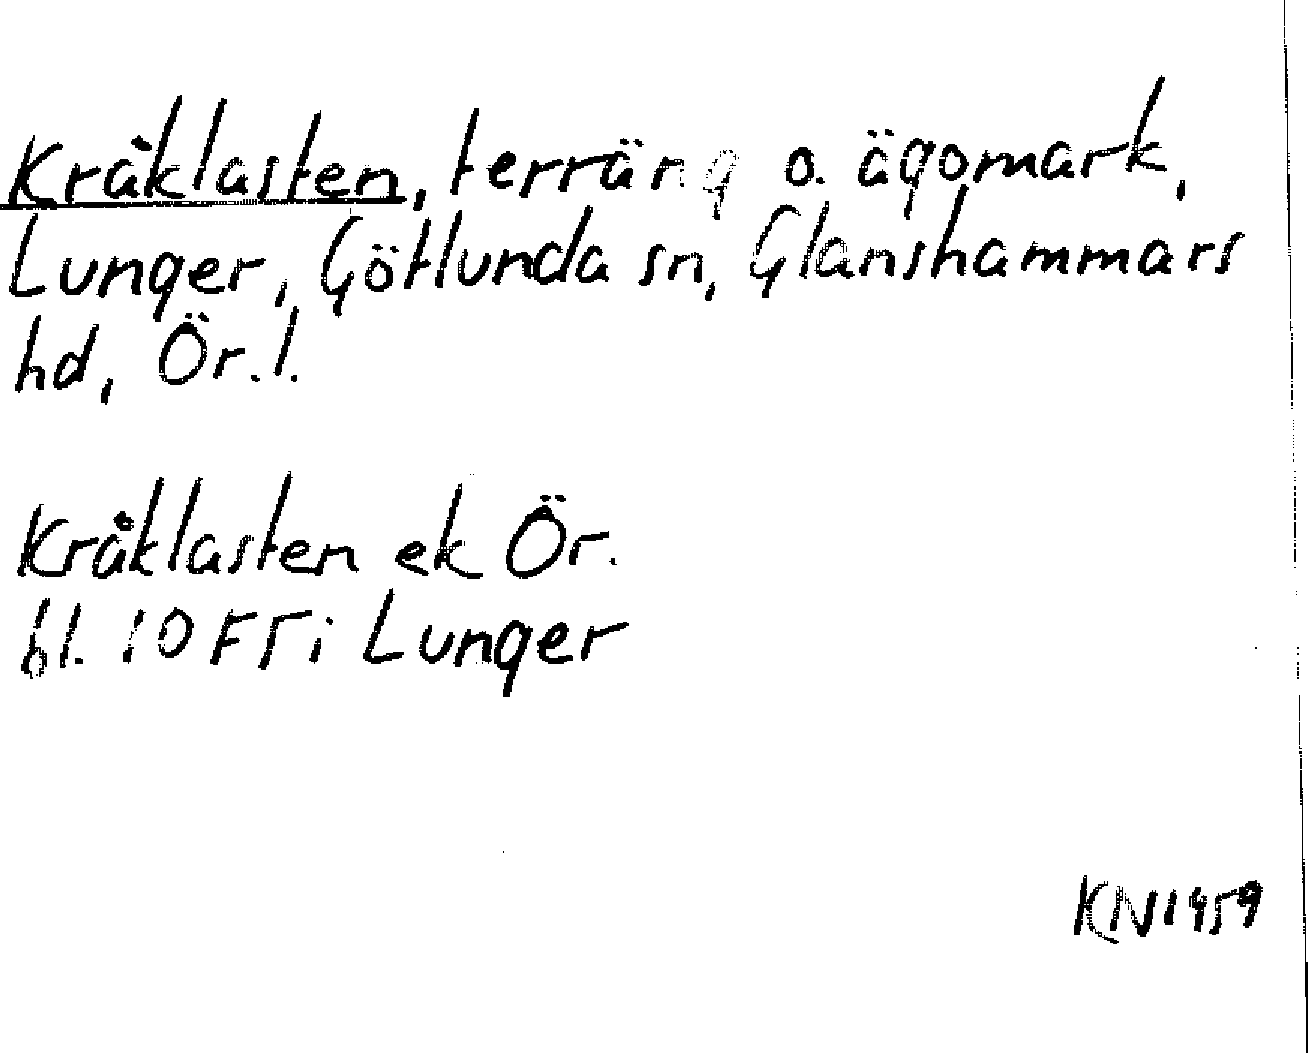 Kråklasten, terräng o. ägomark,
Lunger, Götlunda sn, Glanshammars
hd, Ör. l.
Kråklasten ek Ör.
bl. 10 F5 i Lunger
KN 1959